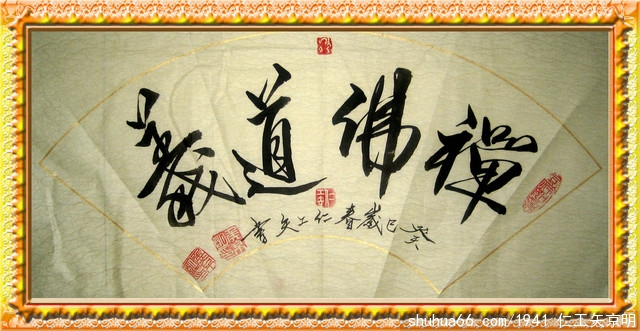 禪佛道義
癸巳歲春仁工矢書
shuhua66.com/1941 仁工矢京明